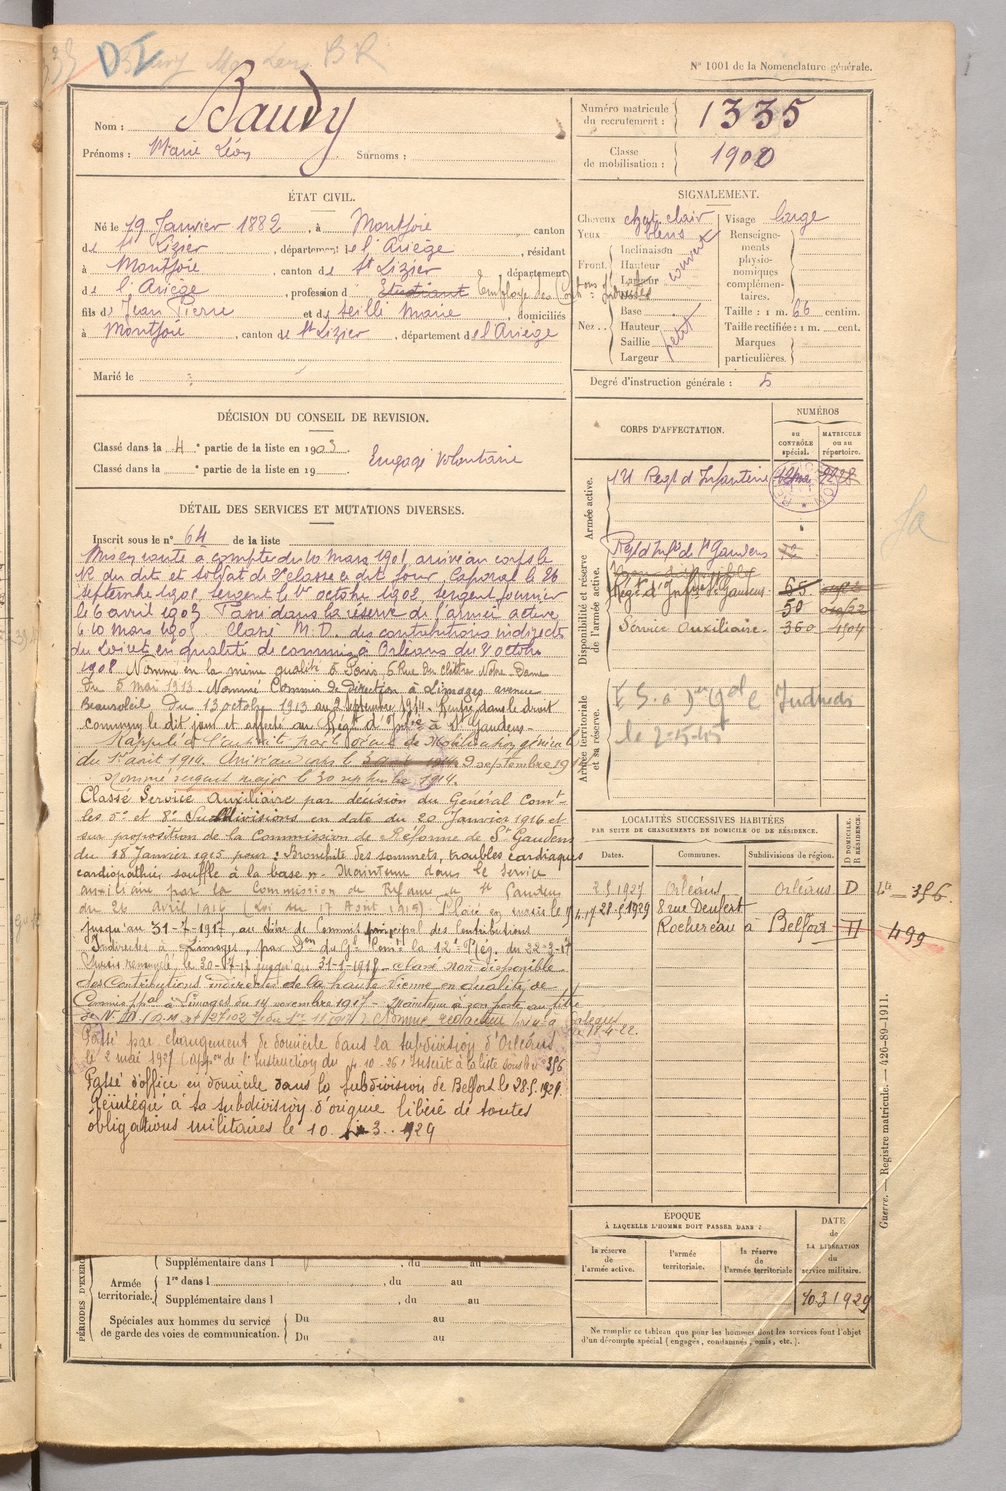 N° 1001 de la Nomenclature générale.
Nom : Baudy
Prénoms : Marie Léon Surnoms :
Numéro matricule du recrutement : 1335
Classe de mobilisation : 1900
ÉTAT CIVIL.
Né le 19 Janvier 1882, à Montjoie canton
de St Lizier, département de l'Ariège, résidant
à Montjoie, canton de St Lizier, département
de l'Ariège, profession d Etudiant Employé des Contons Indirectes
fils de Jean Pierre et de Seille Marie, domiciliés
à Montjoie, canton de St Lizier, département de l'Ariège
Marié le
SIGNALEMENT.
Cheveux chat. clair Visage large
Yeux bleus Renseignements physionomiques complémentaires.
Front. Inclinaison
Hauteur couvert
Largeur
Nez.. Base
Hauteur petit
Saillie
Largeur
Taille : 1 m. 66 centim.
Taille rectifiée : 1 m. cent.
Marques particulières.
Degré d'instruction générale : 5
DÉCISION DU CONSEIL DE REVISION.
Classé dans la 4e partie de la liste en 1903
Classé dans la e partie de la liste en 19
Engagé Volontaire
DÉTAIL DES SERVICES ET MUTATIONS DIVERSES.
Inscrit sous le n° 64 de la liste
Mis en route à compter du 10 mars 1901, arrivé au corps le
12 du dit et soldat de 2e classe le dit jour, Caporal le 26
septembre 1901, sergent le 1er octobre 1902, sergent fourrier
le 6 avril 1903. Passé dans la réserve de l'armée active
le 10 mars 1905. Classé N. D. des contributions indirectes
du Loiret en qualité de commis à Orléans du 8 octobre
1908 Nommé en la même qualité à Paris, 6 Rue du Cloître Notre Dame
du 5 mai 1913 Nommé Commis de Direction à Limoges avenue
Beausoleil du 13 octobre 1913 au 2 septembre 1914. Rentré dans le droit
commun le dit jour et affecté au Régt d'Infie à St Gaudens.
Rappelé à l'activité par décret de Mobilisation générale
du 1er août 1914. Arrivé au corps le 9 septembre 1914
Nommé sergent major le 30 septembre 1914.
Classé Service Auxiliaire par décision du Général Comt
les 5e et 8e Subdivisions en date du 20 Janvier 1916 et
sur proposition de la Commission de Réforme de St Gaudens
du 18 Janvier 1915 pour : Bronchite des sommets, troubles cardiaques
cardiopathie, souffle à la base ». Maintenu dans le service
auxiliaire par la Commission de Réforme de St Gaudens
du 26 Avril 1916 (Loi du 17 Août 1915). Placé en sursis le
jusqu'au 31-7-1917, au titre de Commis principal des Contributions
Indirectes à Limoges, par Don du Gl Comt la 12e Rég. du 22-3-17
Sursis renouvelé le 30-7-17 jusqu'au 31-1-1918 - classé non disponible
des Contributions indirectes de la haute Vienne en qualité de
Commis ppal à Limoges du 14 novembre 1917 - Maintenu à son poste au titre
Passé par changement de domicile dans la subdivision d'Orléans
le 2 mai 1927 (appon de l'Instruction du 4-10-26) Inscrit à la liste sous le n° 356
Passé d'office en domicile dans la subdivision de Belfort le 28.5.1929.
Réintégré à sa subdivision d'origine libéré de toutes
obligations militaires le 10. 3. 1929
CORPS D'AFFECTATION.
NUMÉROS
au CONTRÔLE spécial.
MATRICULE ou au répertoire.
Armée active.
Régt d'Infanterie
Disponibilité et réserve de l'armée active.
Régt d'Infie de St Gaudens 12
Non disponible
Régt d'Infie St Gaudens 55
50
Service Auxiliaire 360 1504
Armée territoriale et sa réserve.
LOCALITÉS SUCCESSIVES HABITÉES
PAR SUITE DE CHANGEMENTS DE DOMICILE OU DE RÉSIDENCE.
Dates. Communes. Subdivisions de région. D DOMICILE. R RÉSIDENCE.
2.5.1927 Orléans Orléans D La = 356.
28.5.1929 8 rue Denfert
Rochereau à Belfort D 499
Guerre. — Registre matricule. — 426-89-1911.
ÉPOQUE
À LAQUELLE L'HOMME DOIT PASSER DANS :
la réserve de l'armée active.
l'armée territoriale.
la réserve de l'armée territoriale
DATE de LA LIBÉRATION du service militaire.
10.3.1929
Ne remplir ce tableau que pour les hommes dont les services font l'objet
d'un décompte spécial (engagés, condamnés, omis, etc.).
PÉRIODES D'EXERC
Armée territoriale.
Supplémentaire dans l , du au
1re dans l , du au
Supplémentaire dans l , du au
Spéciales aux hommes du service de garde des voies de communication.
Du au
Du au